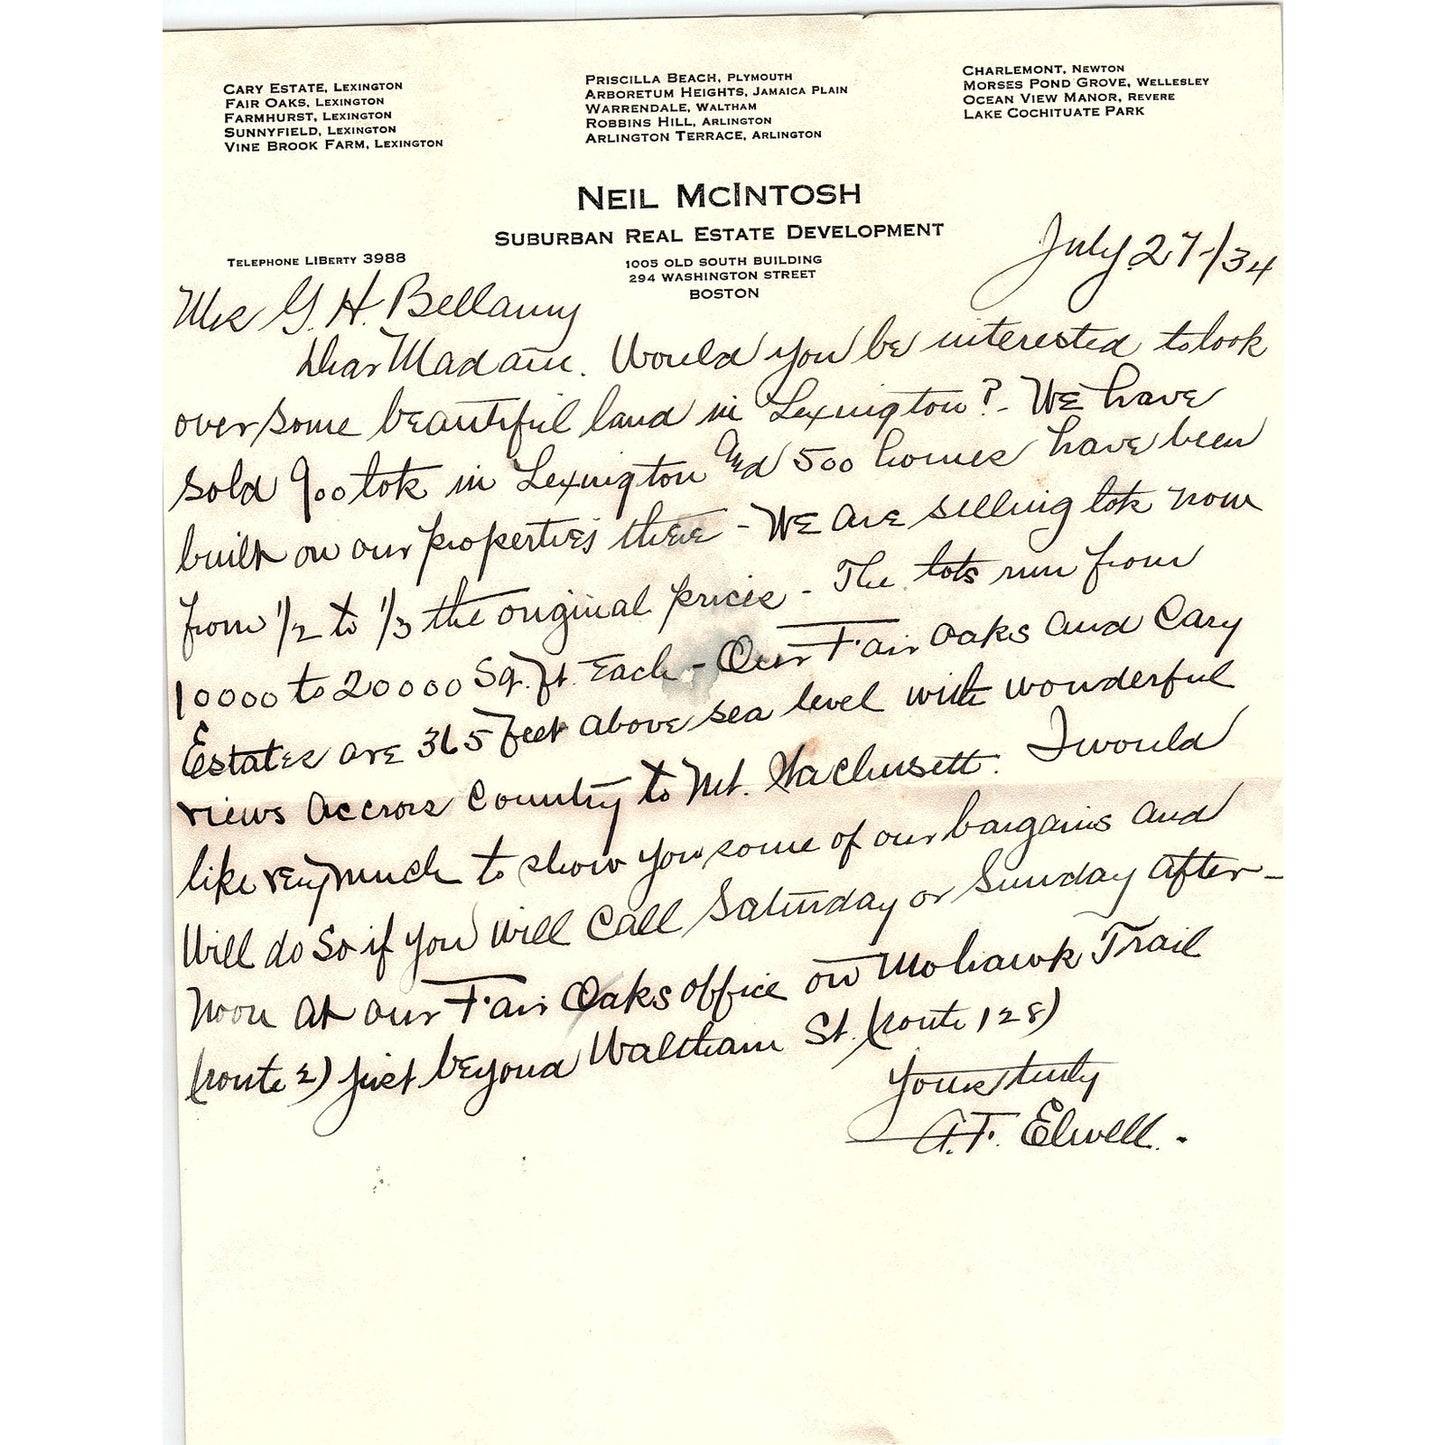 Cary Estate, Lexington
Fair Oaks, Lexington
Farmhurst, Lexington
Sunnyfield, Lexington
Vine Brook Farm, Lexington
Priscilla Beach, Plymouth
Arboretum Heights, Jamaica Plain
Warrendale, Waltham
Robbins Hill, Arlington
Arlington Terrace, Arlington
Charlemont, Newton
Morses Pond Grove, Wellesley
Ocean View Manor, Revere
Lake Cochituate Park
Neil McIntosh
Suburban Real Estate Development
Telephone LIBerty 3988
1005 OLD SOUTH BUILDING
294 WASHINGTON STREET
BOSTON
July 27-/34
Mrs G. H. Bellamy
Dear Madam. Would you be interested to look
over some beautiful land in Lexington? - We have
sold 900 lots in Lexington and 500 homes have been
built on our properties there - We are selling lots now
from 1/2 to 1/3 the original prices - The lots run from
10000 to 20000 Sq. ft. Each - Our Fair Oaks and Cary
Estates are 365 feet above sea level with wonderful
views accross Country to Mt. Wachusett. I would
like very much to show you some of our bargains and
Will do so if you will Call Saturday or Sunday After-
noon at our Fair Oaks office on Mohawk Trail
(route 2) just beyond Waltham St. (route 128)
Yours truly
A. F. Elwell.